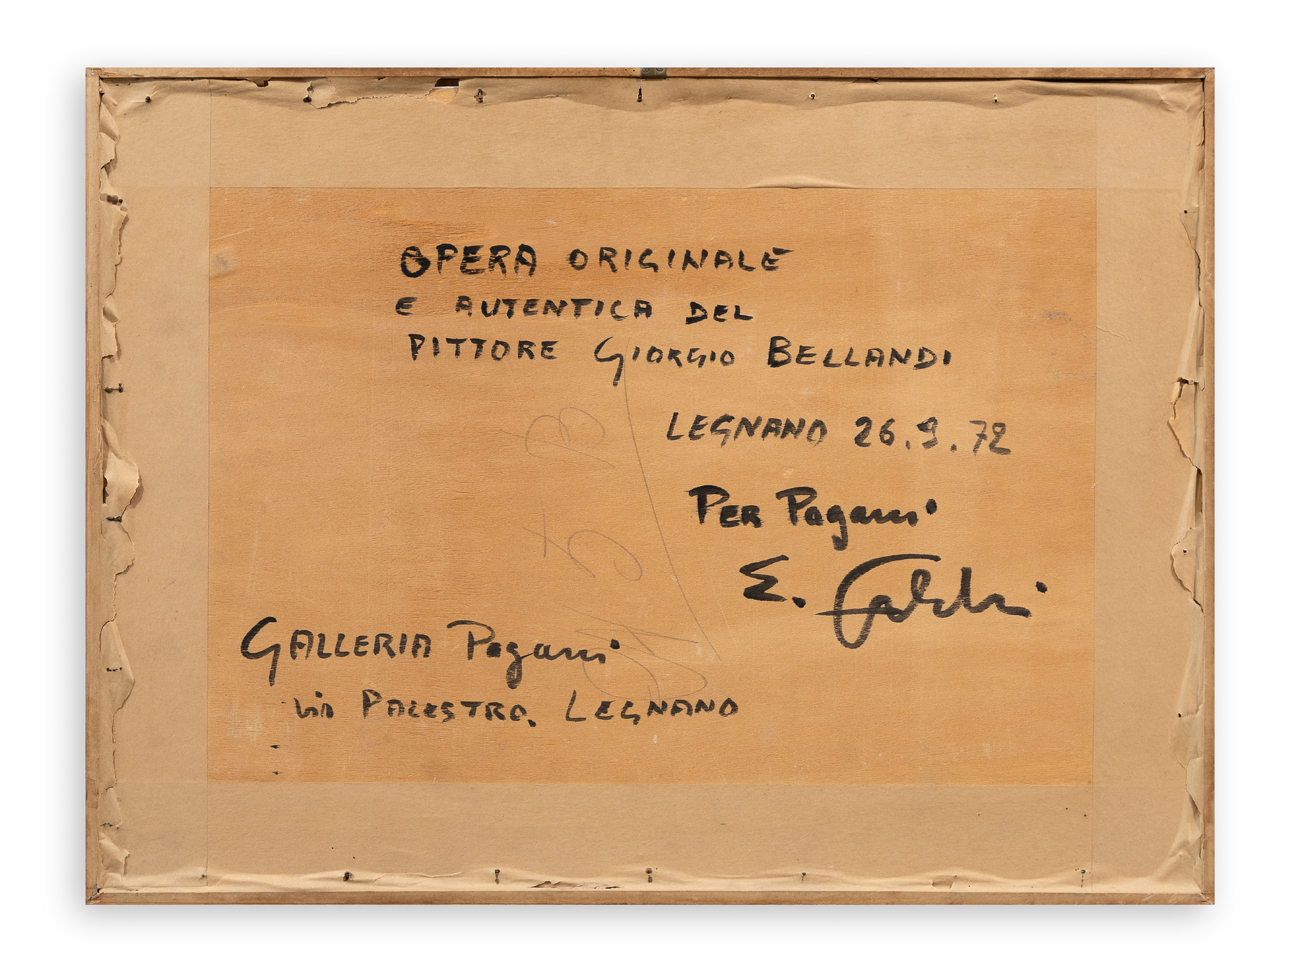 OPERA ORIGINALE
E AUTENTICA DEL
PITTORE GIORGIO BELLANDI
LEGNANO 26.9.72
PER Pagani
E.
GALLERIA Pagani
via PALESTRO, LEGNANO